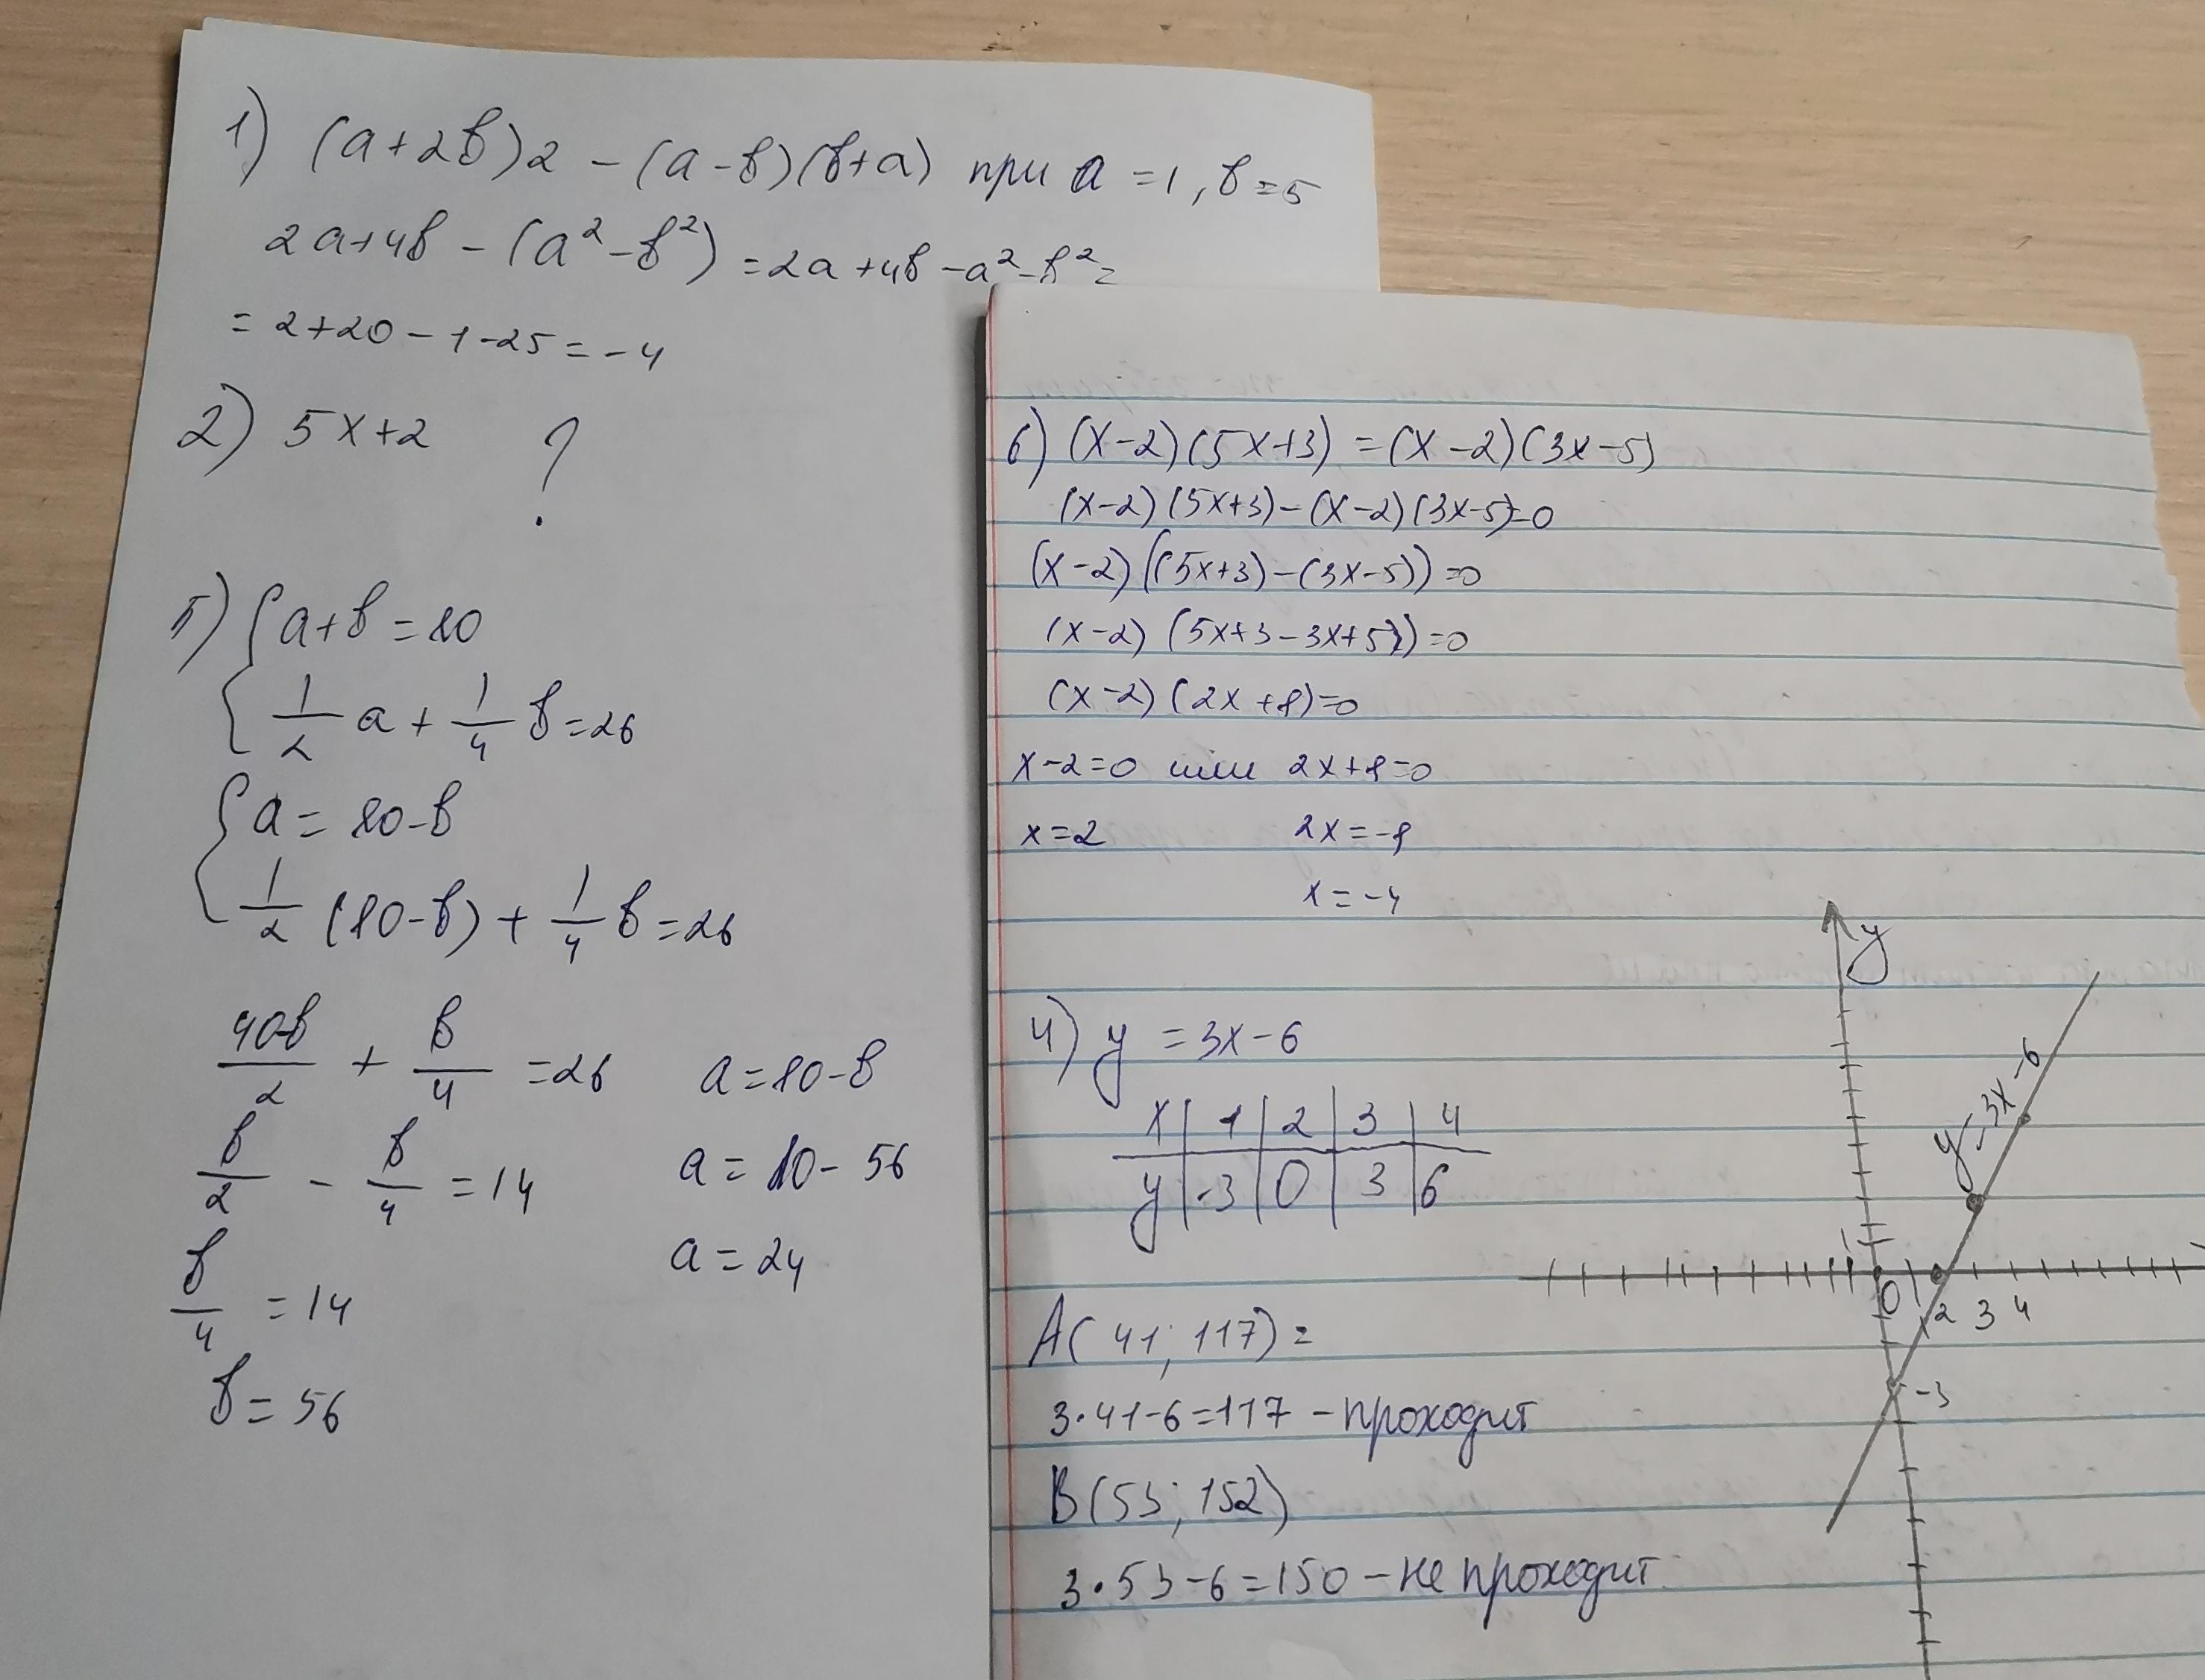 1) (a+2b)2 - (a-b)(b+a) при a = 1, b = 5
2a+4b - (a² - b²) = 2a + 4b - a² - b² =
= 2+20 - 1 - 25 = -4
2) 5x+2 ?
5) { a+b = 80
{ 1/2 a + 1/4 b = 26
{ a = 80-b
{ 1/2 (80-b) + 1/4 b = 26
40-b/2 + b/4 = 26
b/2 - b/4 = 14
b/4 = 14
b = 56
a = 80-b
a = 80 - 56
a = 24
6) (x-2)(5x+3) = (x-2)(3x-5)
(x-2)(5x+3) - (x-2)(3x-5)=0
(x-2)((5x+3)-(3x-5))=0
(x-2)(5x+3-3x+5))=0
(x-2)(2x+8)=0
x-2=0 или 2x+8=0
x=2 2x=-8
x=-4
4) y = 3x-6
x | 1 | 2 | 3 | 4
y | -3 | 0 | 3 | 6
A(41; 117) =
3·41-6=117 - проходит
B(53; 152)
3·53-6=150 - не проходит
y
y=3x-6
1
0 2 3 4
-3